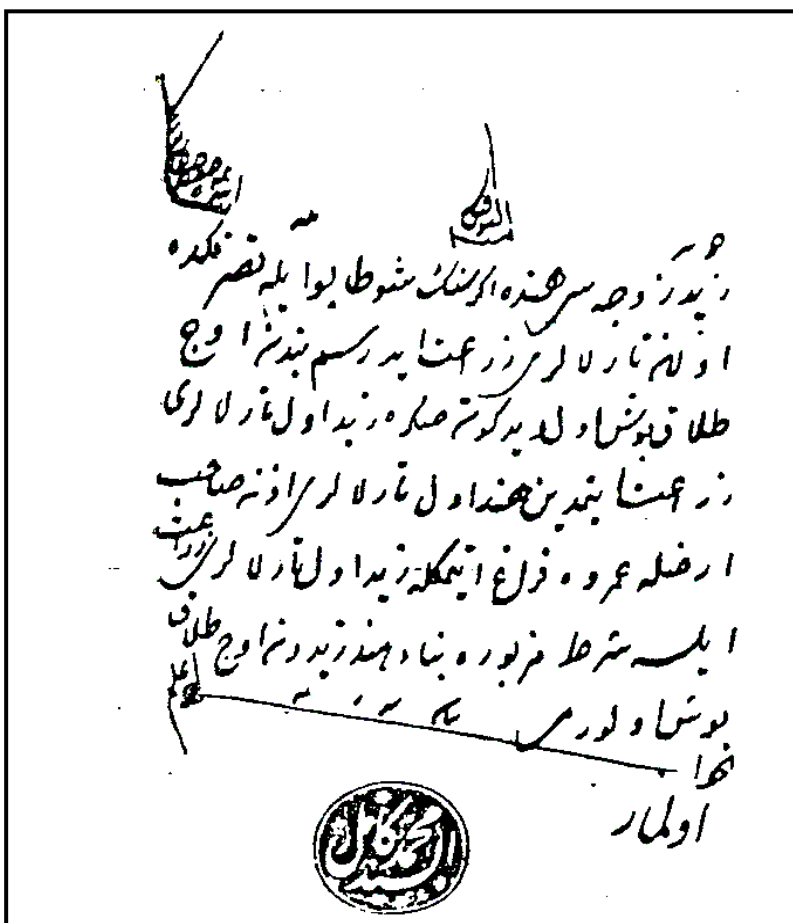 زيد زوجه سى هنده اكر سنك شو طاپو ايله تصرفكده
اولان تارلالرى زرعت ايدرسم بندن اوج
طلاق بوش اول ديدكدن صكره زيد اول تارلالرى
زرعت ايتمدين هند اول تارلالرى اذن صاحب
ارضله عمروه فراغ اتمكله زيد اول تارلالرى زراعت
ايلسه شرط مزبوره بناء هند زيددن اوج طلاق
بوش اولورمى
الجواب
اولماز
السيد محمد كامل